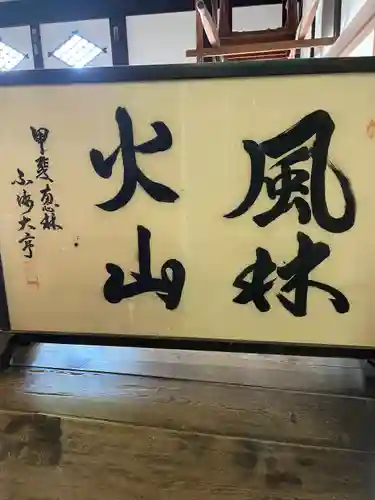 風林
火山
甲斐恵林
不滴大亨